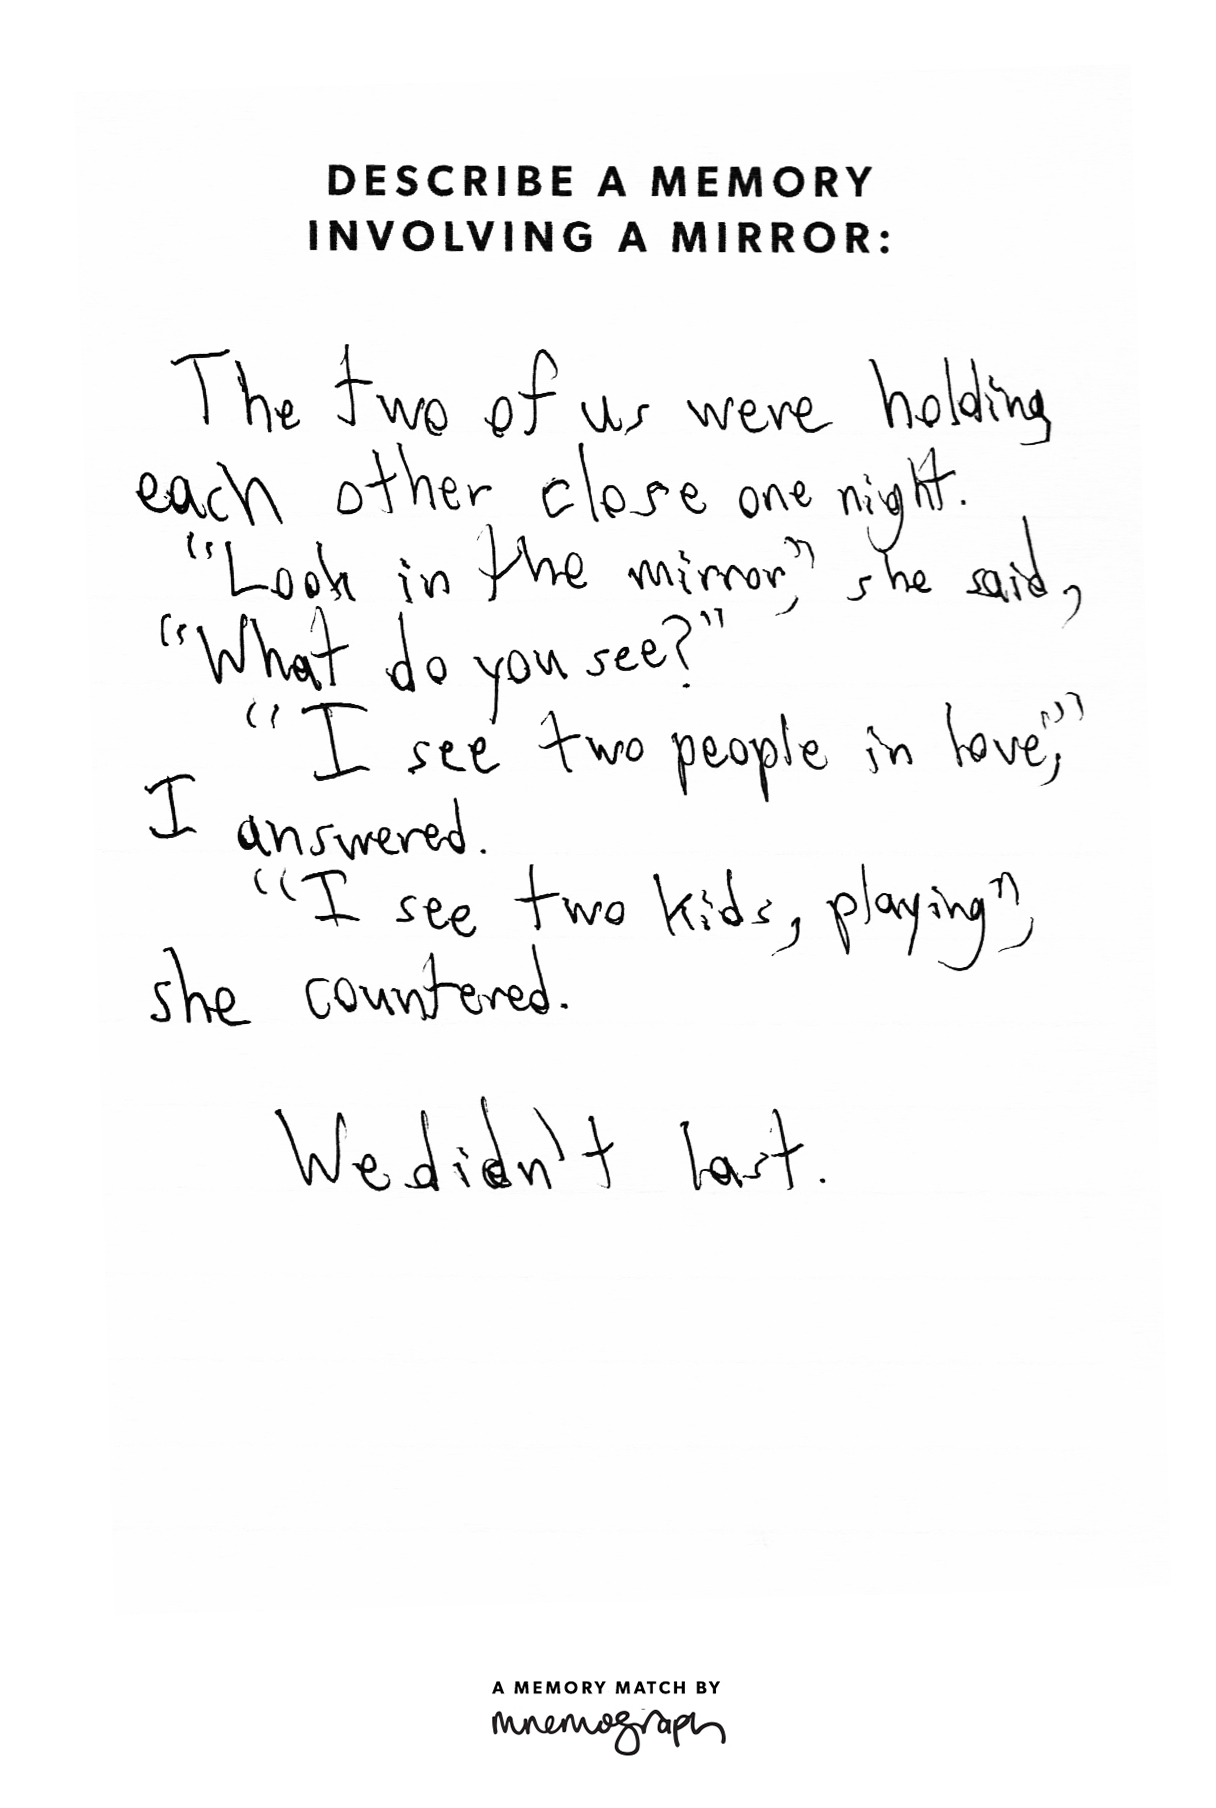 DESCRIBE A MEMORY
INVOLVING A MIRROR:
The two of us were holding
each other close one night.
“Look in the mirror,” she said,
“What do you see?”
“I see two people in love,”
I answered.
“I see two kids, playing”,
she countered.
We didn't last.
A MEMORY MATCH BY
mnemograph